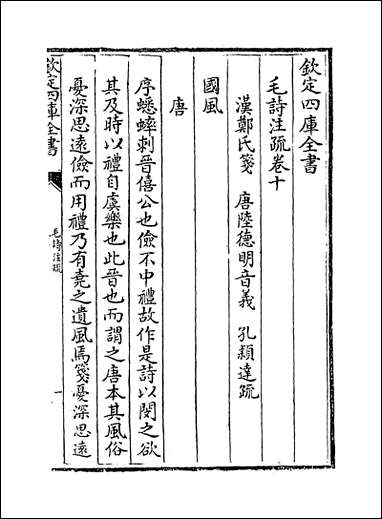 欽定四庫全書
毛詩注疏卷十
漢鄭氏箋　唐陸德明音義　孔穎達疏
國風
唐
序蟋蟀刺晉僖公也儉不中禮故作是詩以閔之欲
其及時以禮自虞樂也此晉也而謂之唐本其風俗
憂深思遠儉而用禮乃有堯之遺風焉箋憂深思遠
欽定四庫全書
毛詩注疏
一